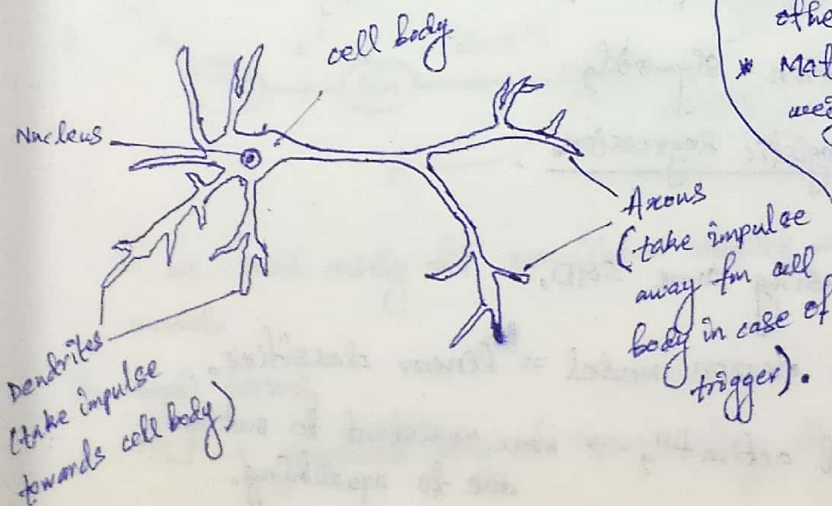 cell body
othe
* Mat
wei
Nucleus
Axons
(take impulse
away fm cell
body in case of
trigger).
Dendrites
(take impulse
towards cell body)